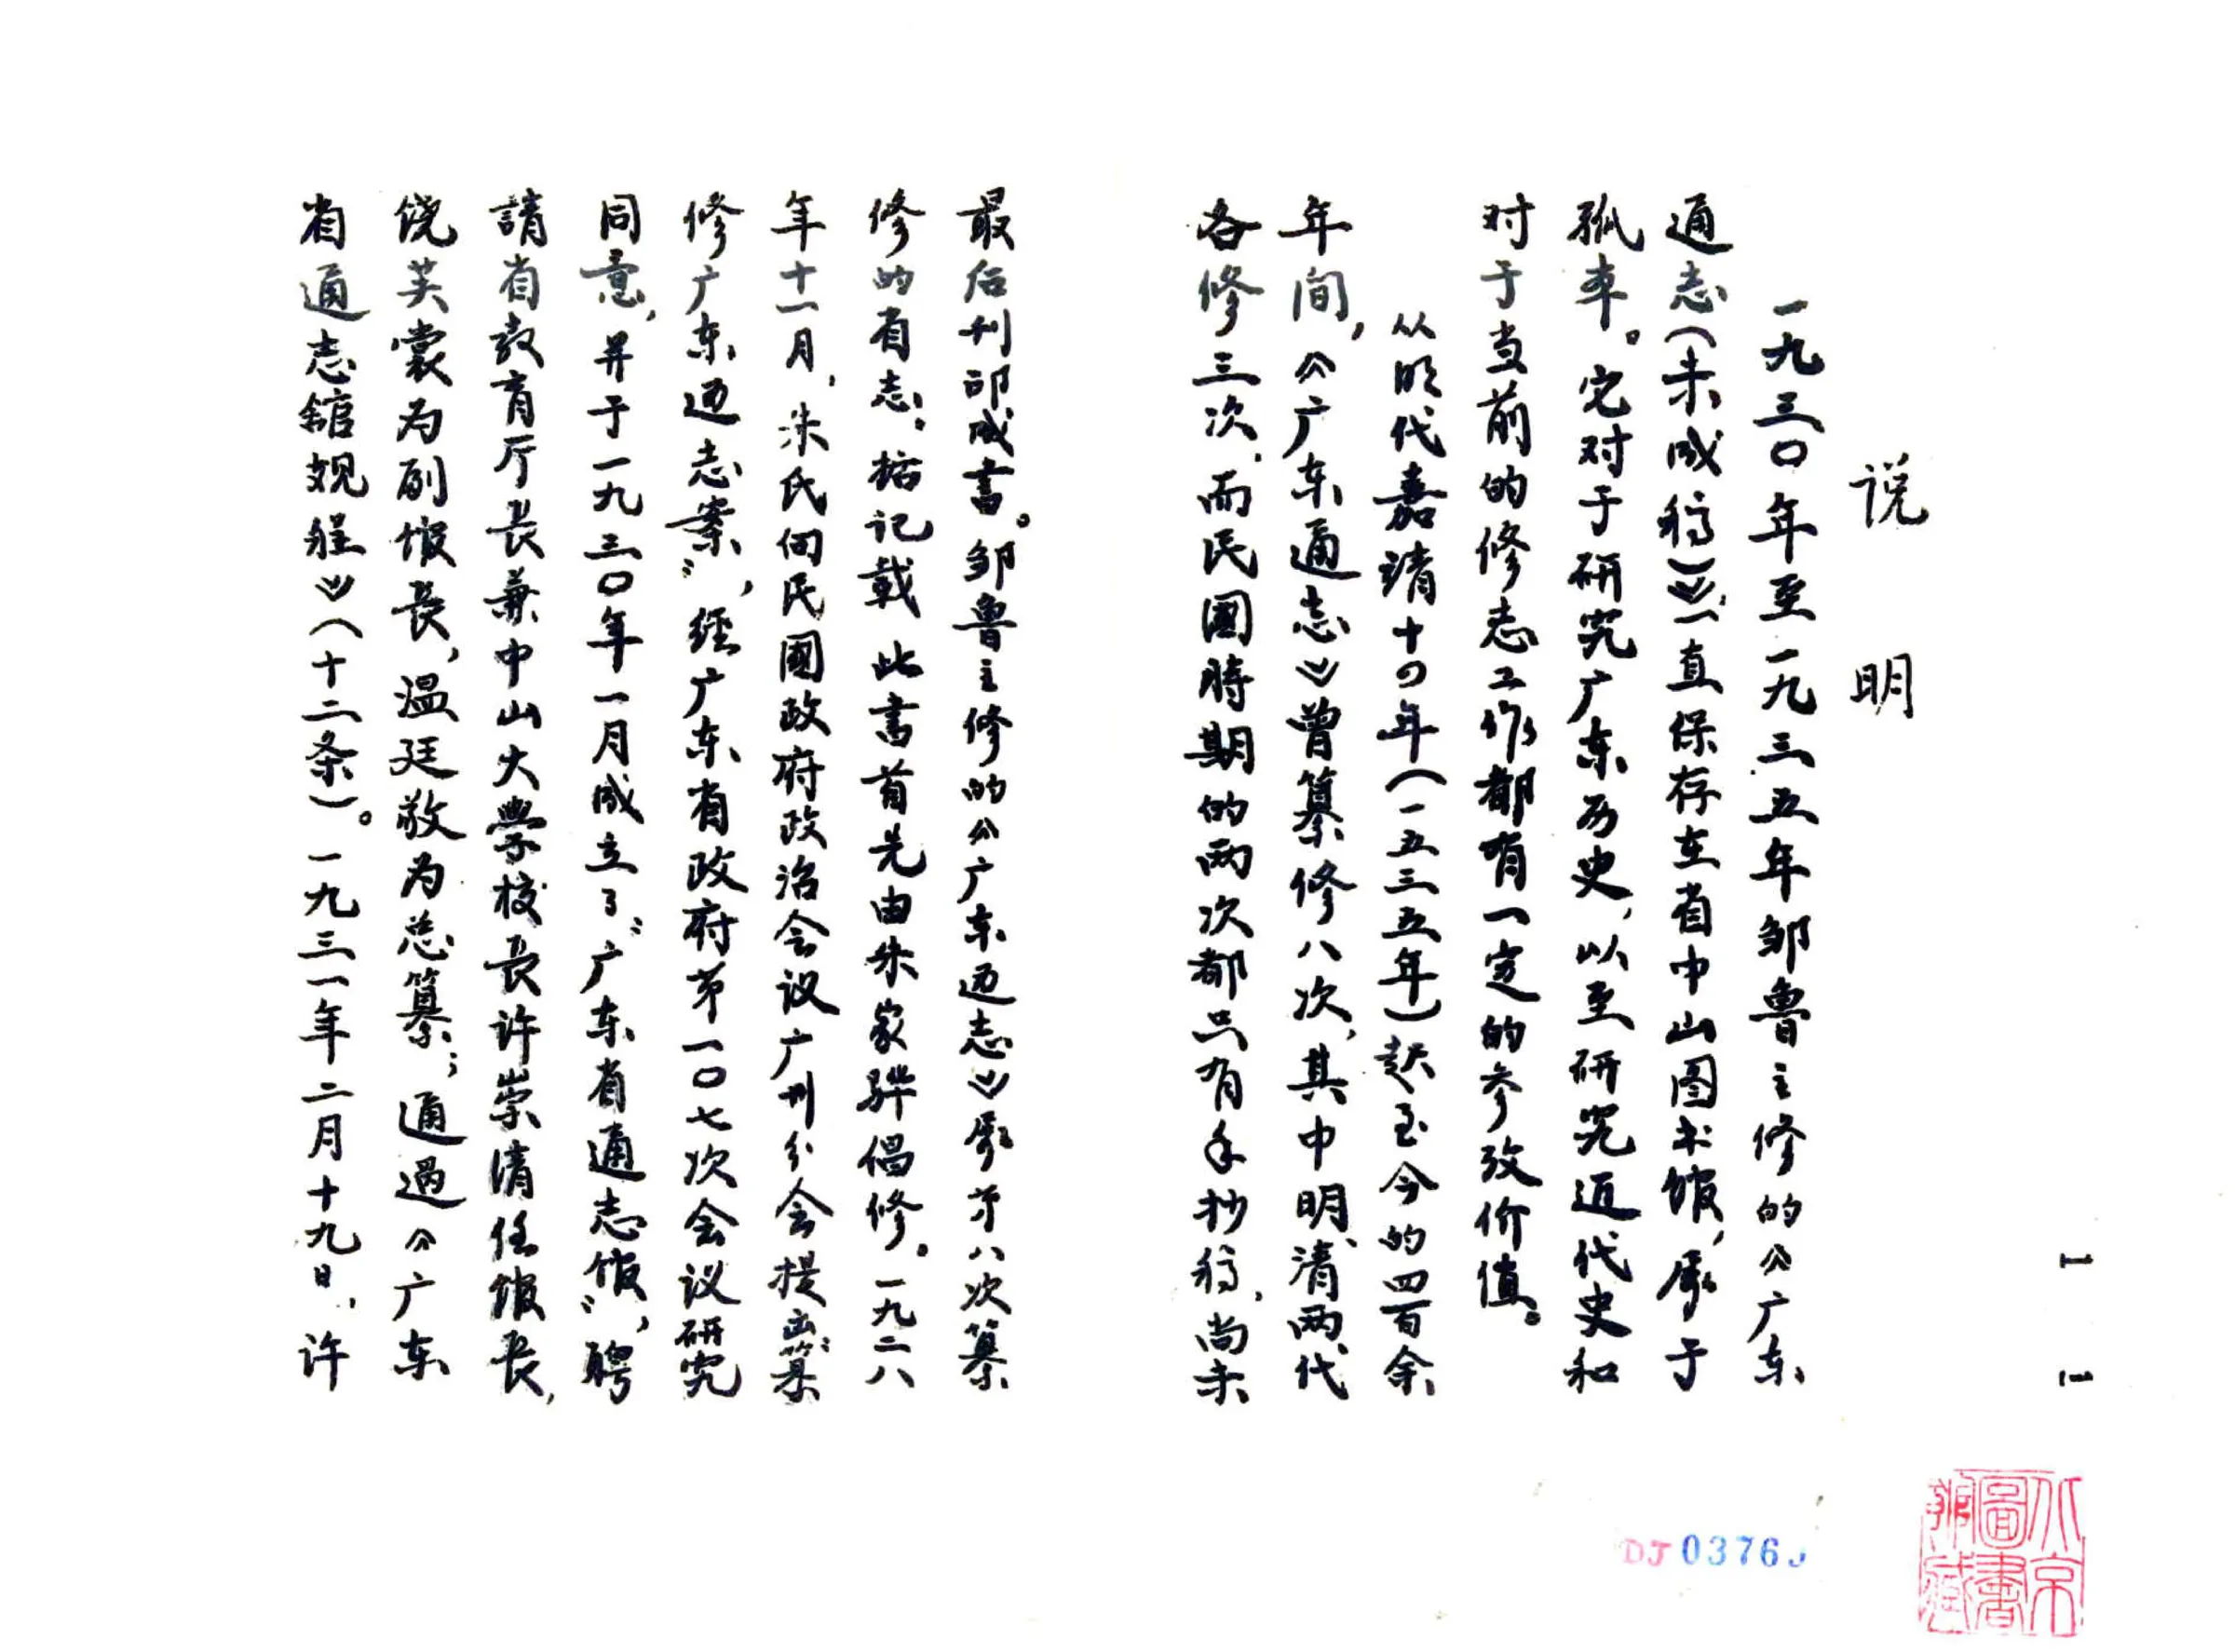 说明
一九三〇年至一九三五年邹鲁主修的《广东
通志(未成稿)》,一直保存在省中山图书馆,属于
孤本。它对于研究广东历史,以至研究近代史和
对于当前的修志工作都有一定的参考价值。
从明代嘉靖十四年(一五三五年)起至今的四百余
年间,《广东通志》曾纂修八次,其中明、清两代
各修三次,而民國時期的两次都只有手抄稿,尚未
最后刊印成书。邹鲁主修的《广东通志》属第八次纂
修的省志:据记载此書首先由朱家骅倡修。一九二八
年十一月,朱氏向民國政府政治会议广州分会提出“纂
修广东通志案”,经广东省政府第一〇七次会议研究
同意,并于一九三〇年一月成立了“广东省通志馆”,聘
請省教育厅長兼中山大學校長许崇清任馆長,
饶芙裳为副馆長,温廷敬为总纂;通過《广东
省通志館規程》(十二条)。一九三一年二月十九日,许
1
1
DJ0376
北京圖書館藏